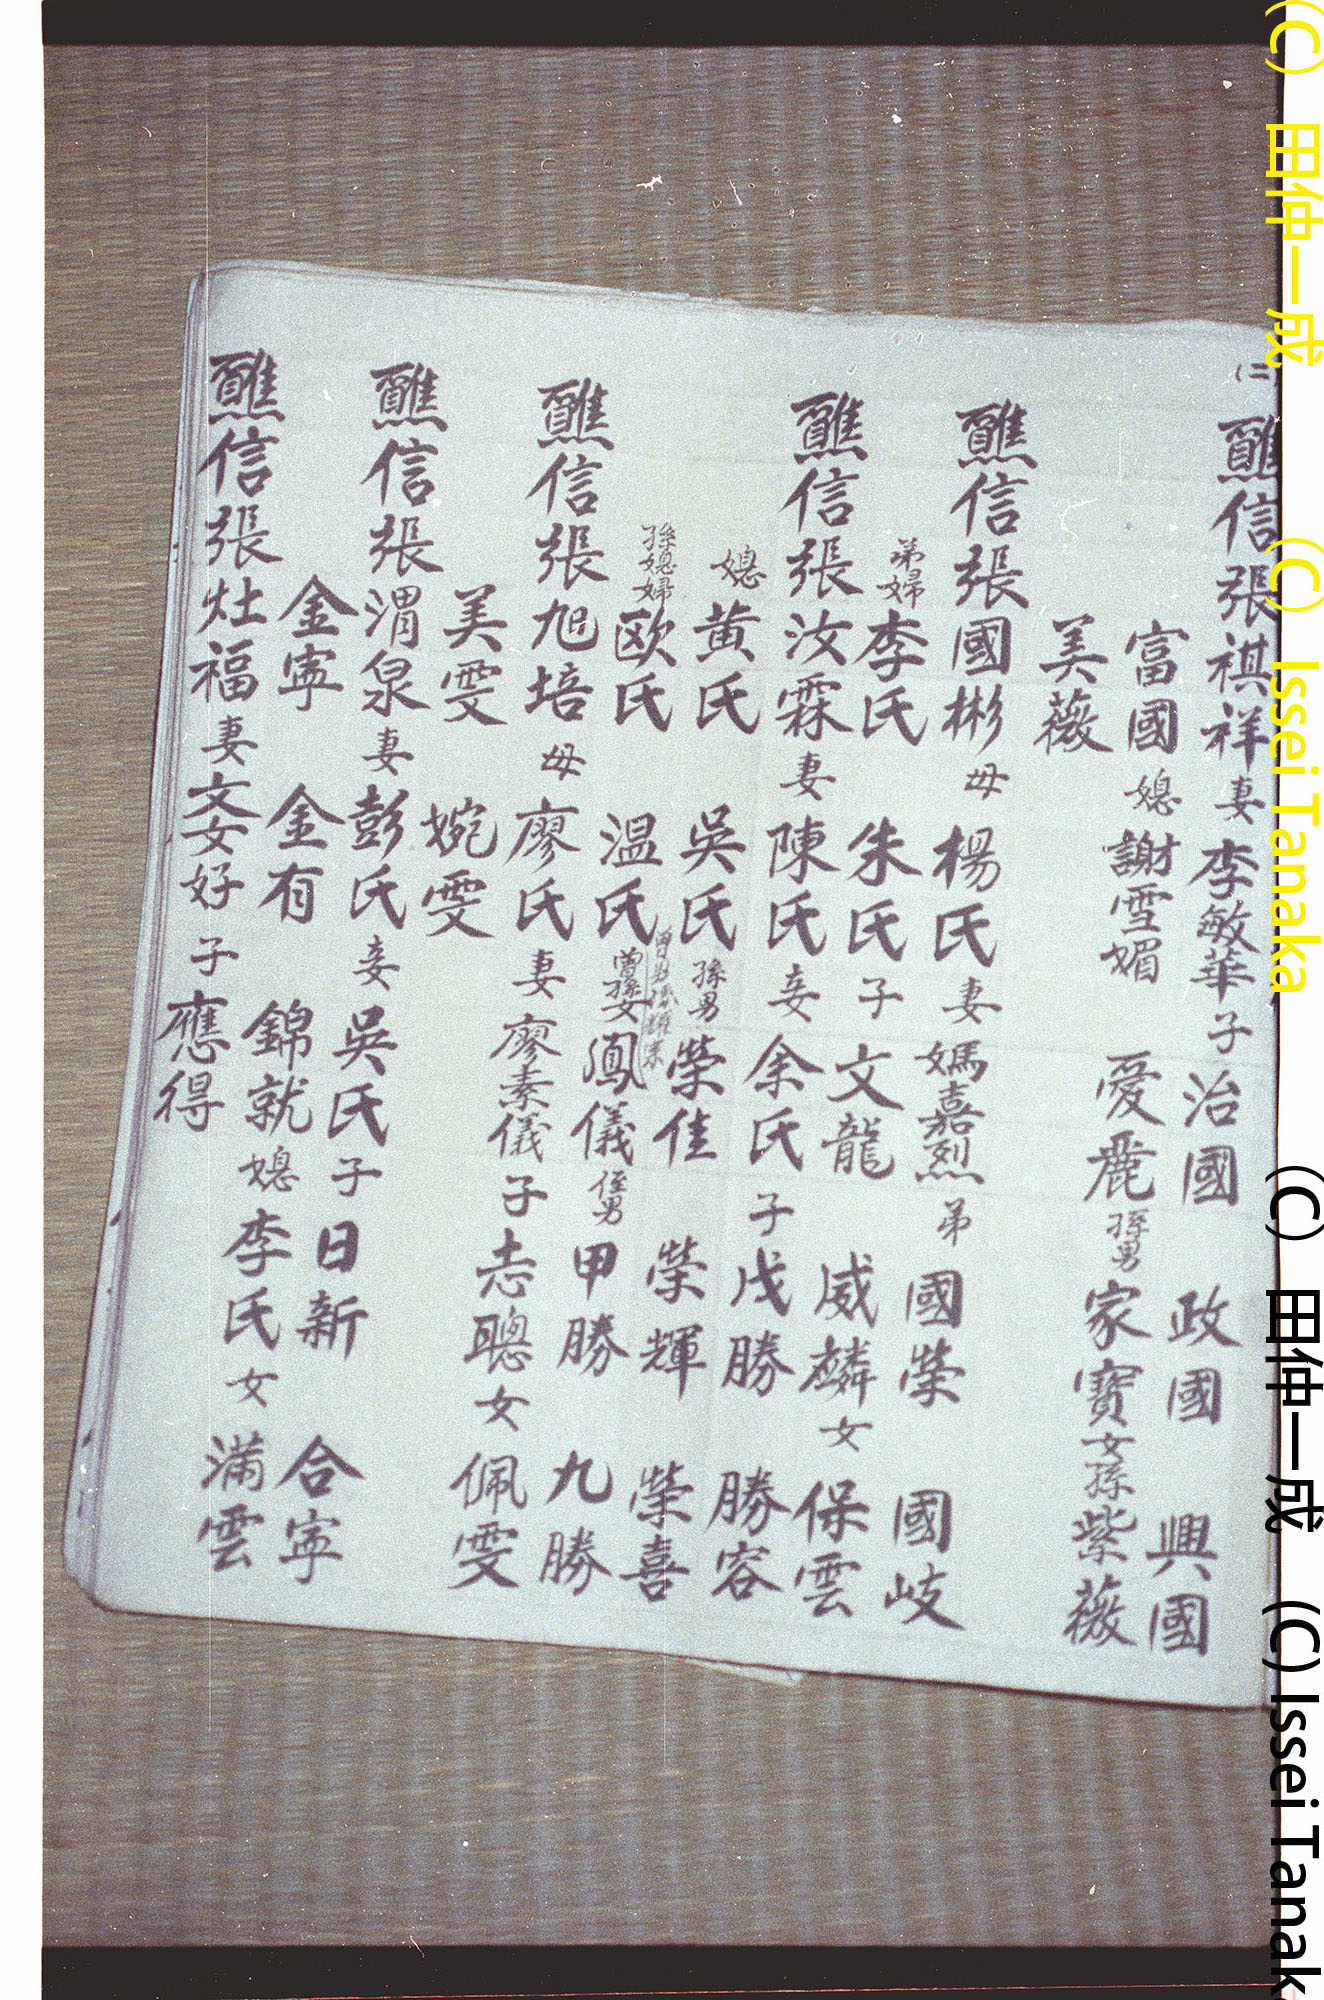 (二)
醮信張祺祥妻李敏華子治國 政國 興國
富國媳謝雪媚 愛麗孫男家寶女孫紫薇
美薇
醮信張國彬母楊氏妻媽嘉烈弟國榮 國岐
弟婦李氏 朱氏子文龍 威麟女保雲
醮信張汝霖妻陳氏妾余氏子戊勝 勝容
媳黄氏 吳氏孫男榮佳 榮輝 榮喜
孫媳婦欧氏 温氏曾孫女鳳儀侄男甲勝 九勝
醮信張旭培母廖氏妻廖素儀子志聰女佩雯
美雯 婉雯
醮信張渭泉妻彭氏妾吳氏子日新 合寧
金寧 金有 錦就媳李氏女滿雲
醮信張灶福妻文女好子應得
(C) 田仲一成 (C) Issei Tanaka
(C) 田仲一成 (C) Issei Tanak